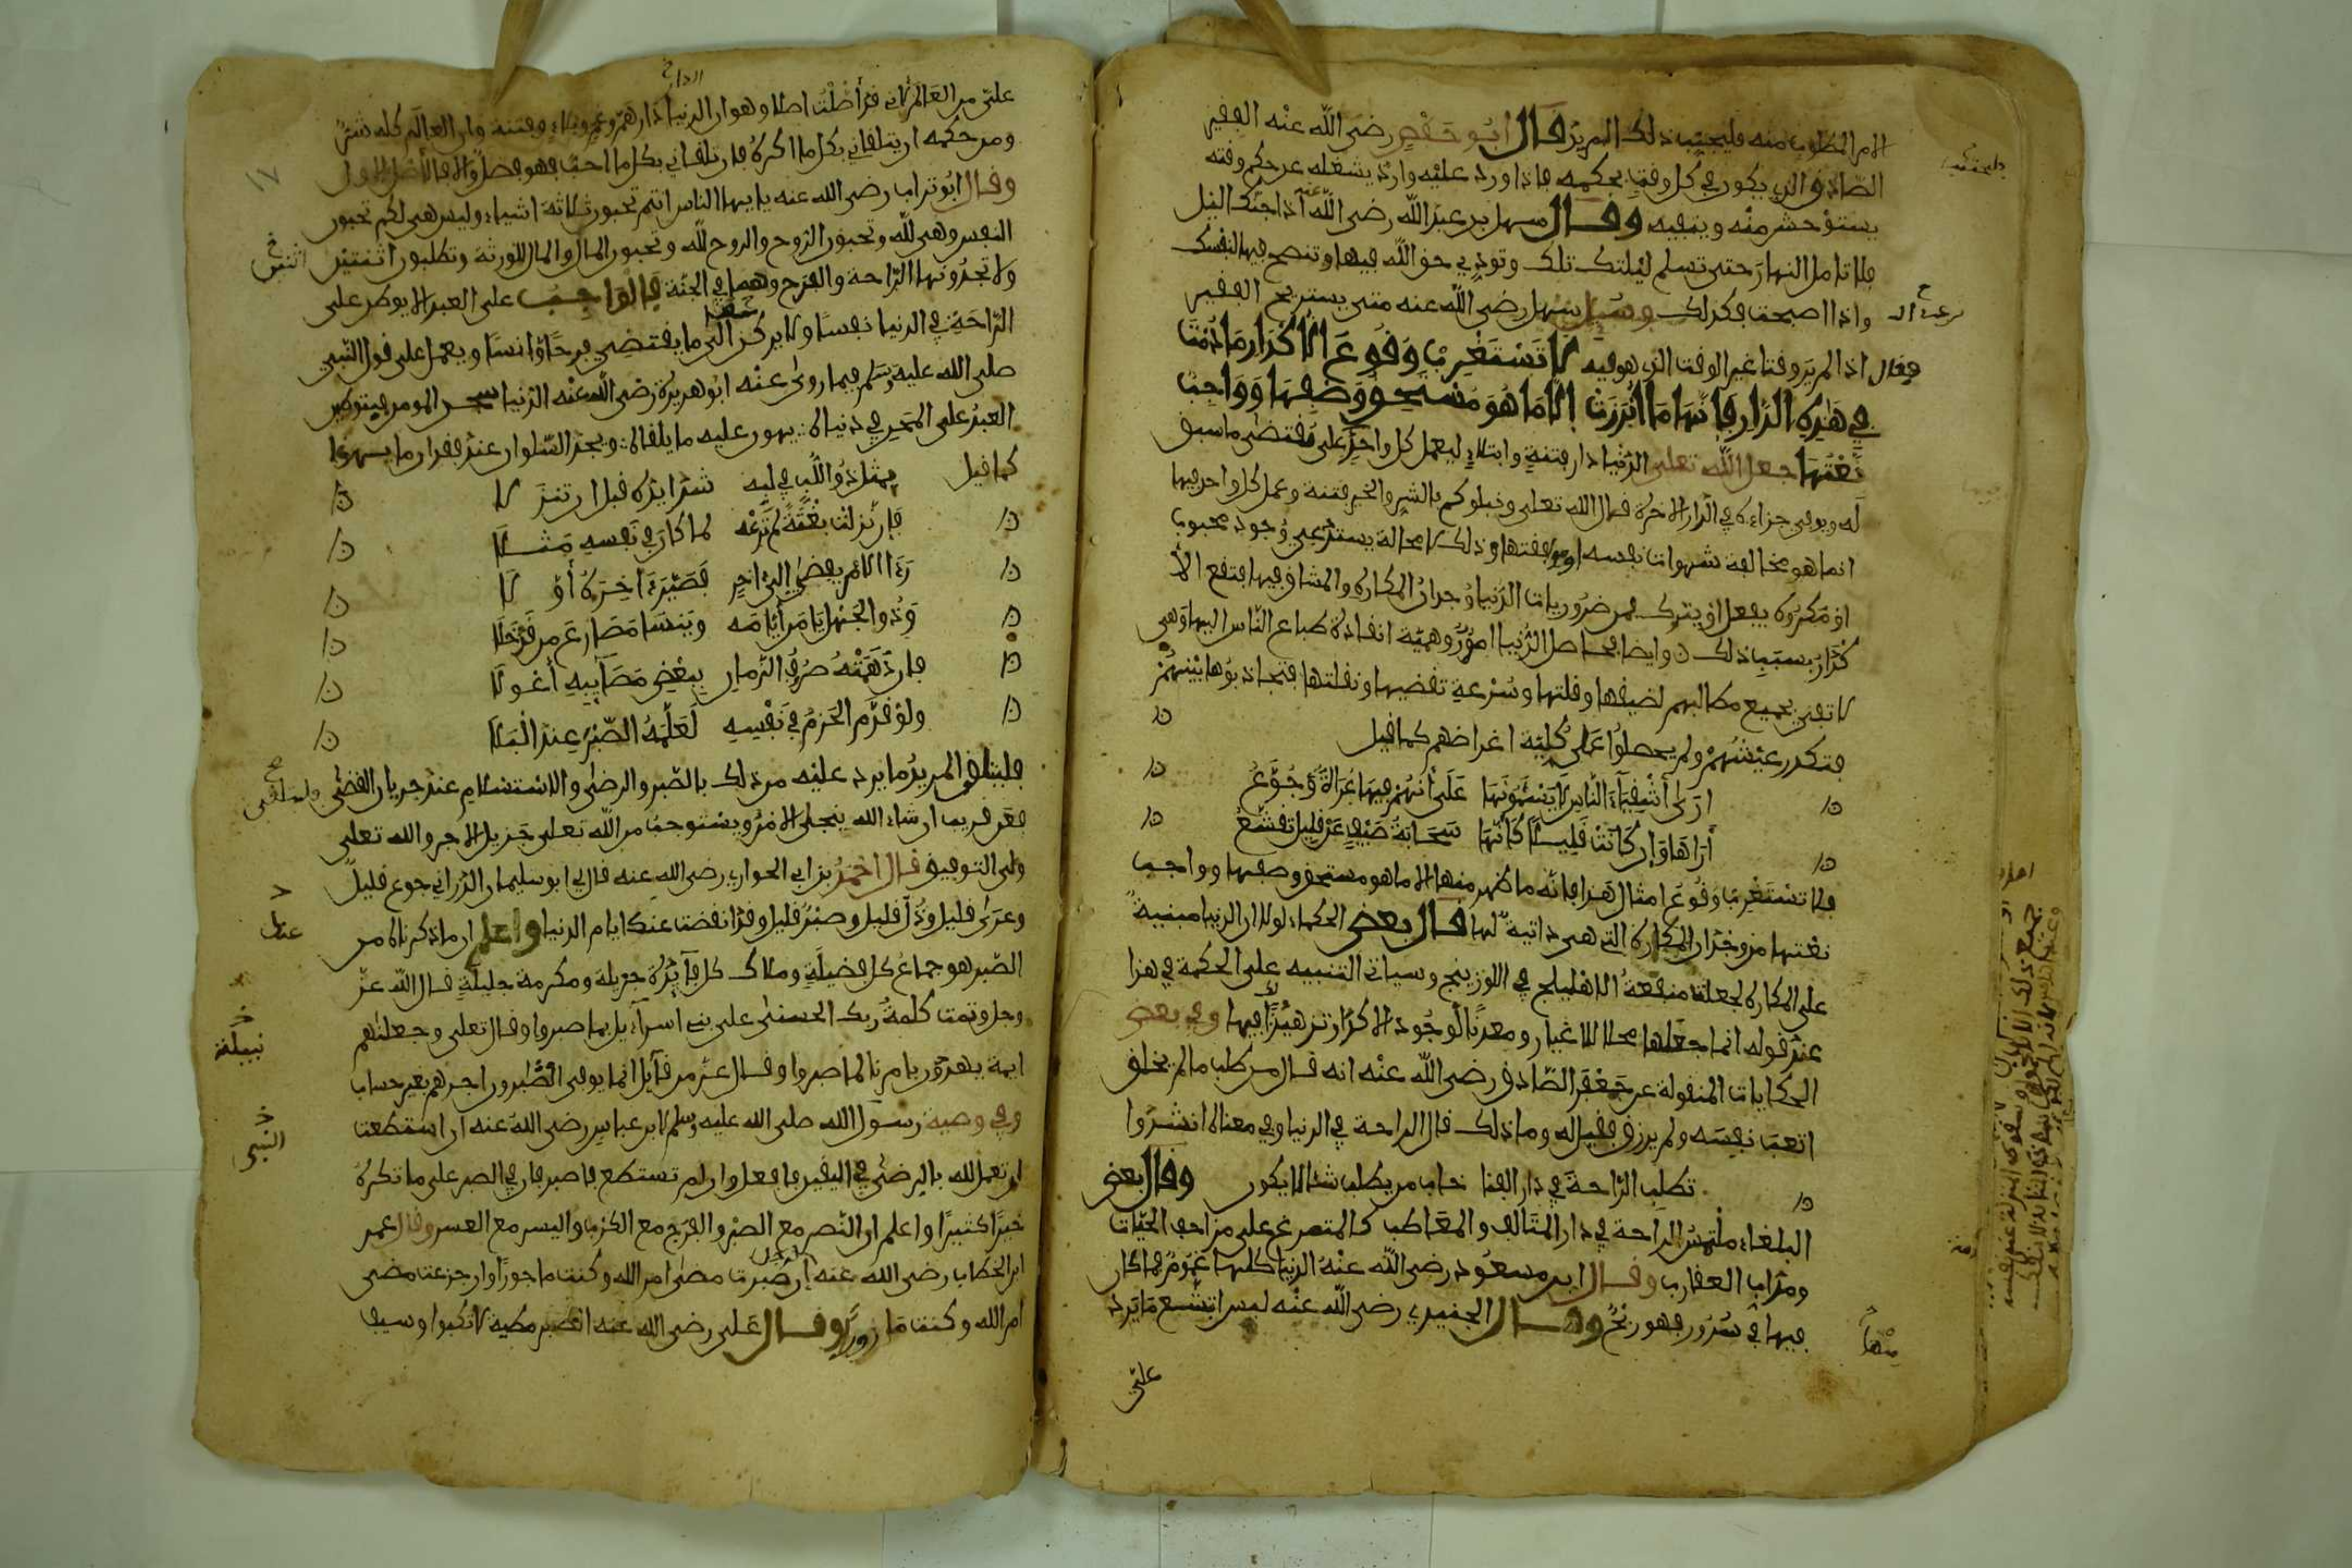 الامر المطلوب منه فليجتنب ذلك المريد قال ابو حفص رضي الله عنه الفقير
الصادق الذي يكون في كل وقت بحكمه فاذا ورد عليه وارد يشغله عن حكم وقته
يستوحش منه وينفيه وقال سهل بن عبد الله رضي الله عنه اذا جنك اليل
فلا تامل النهار حتى تسلم ليلتك تلك وتودي حق الله فيها وتنصح فيها لنفسك
واذا اصبحت فكذلك وسيل سهل رضي الله عنه متى يستريح الفقير
فقال اذا لم ير وقتا غير الوقت الذي هو فيه لا تستغرب وقوع الاكدار ما دمت
في هذه الدار فانها ما ابرزت الا ما هو مستحق وصفها وواجب
نعتها جعل الله تعلى الدنيا دار فتنة وابتلاء ليعمل كل واحد على مقتضى ما سبق
له ويوفى جزاءه في الدار الاخرة قال الله تعلى ونبلوكم بالشر والخير فتنة وعمل كل واحد فيها
انما هو مخالفة شهوات نفسه او موافقتها وذلك لا محالة يستدعي وجود محبوب
او مكروه يفعل او يترك فمن ضروريات الدنيا وجدان المكاره والمشاق فيها فتقع الا
كدار بسبب ذلك ن وايضا فحاصل الدنيا امور وهمية انقادت طباع الناس اليها وهي
لا تفي بجميع مطالبهم لضيقها وقلتها وسرعة تقضيها ونقلتها فتجاذبوها بينهم
فتكدر عيشهم ولم يحصلوا على كلية اغراضهم كما قيل
ارى اشقياء الناس لا يسئمونها على انهم فيها عراة وجوع
اراها وان كانت قليلا كانها سحابة صيف عن قليل تقشع
فلا تستغرب وقوع امثال هذا فانه ما ظهر منها الا ما هو مستحق وصفها وواجب
نعتها من وجدان المكاره التي هي ذاتية لها قال بعض الحكماء لولا ان الدنيا مبنية
على المكاره لجعلت منفعة الاهليلج في اللوزينج وسياتي التنبيه على الحكمة في هذا
عند قوله انما جعلها محلا للاغيار ومعدنا لوجود الاكدار تزهيدا لك فيها وفي بعض
الحكايات المنقولة عن جعفر الصادق رضي الله عنه انه قال من طلب ما لم يخلق
اتعب نفسه ولم يرزق فقيل له وما ذلك قال الراحة في الدنيا وفي معناه انشدوا
تطلب الراحة في دار الفنا خاب من يطلب شيئا لا يكون وقال بعض
البلغاء ملتمس الراحة في دار المتالف والمعاطب كالمتمرغ على مزاحف الحيات
ومداب العقارب وقال ابن مسعود رضي الله عنه الدنيا كلها غموم فما كان
فيها في سرور فهو ربح وقال الجنيد رضي الله عنه ليس ابتشع ما يرد
على
علي من العالم لاني قد اصلت اصلا وهو ان الدنيا دار هم وغم وبلاء وفتنة وان العالم كله شر
ومن حكمه ان يتلقاني بكل ما اكره فان تلقاني بكل ما احب فهو فضل والا فالاصل الاول
وقال ابو تراب رضي الله عنه يا ايها الناس انتم تحبون ثلاثة اشياء وليس هي لكم تحبون
النفس وهي لله وتحبون الروح والروح لله وتحبون المال والمال للورثة وتطلبون اثنتين
ولا تجدونها الراحة والفرح وهما في الجنة فالواجب على العبد الا يوطن على
الراحة في الدنيا نفسا ولا يركن الى ما يقتضي فرحا وانسا ويعمل على قول النبي
صلى الله عليه وسلم فيما روى عنه ابو هريرة رضي الله عنه الدنيا سجن المومن فبتوطين
العبد على المحن في دنياه يهون عليه ما يلقاه ويجد السلوان عند فقدان ما يهواه
كما قيل يمثل ذو اللب في لبه شدايده قبل ان تنزلا
فان نزلت بغتة لم ترعه لما كان في نفسه مثلا
رءا الامر يفضي الى اخر فصير ءاخره اولا
وذو الجهل يامن ايامه وينسا مصارع من قد خلا
فان دهمته صروف الزمان ببعض مصايبه اعولا
ولو قدم الحزم في نفسه لعلمه الصبر عند البلا
فليتلق المريد ما يرد عليه من ذلك بالصبر والرضى والاستسلام عند جريان القضى
فعن قريب ان شاء الله ينجلي الامر ويستوجب من الله تعلى جزيل الاجر والله تعلى
ولي التوفيق قال احمد بن ابي الحواري رضي الله عنه قال لي ابو سليمان الداراني جوع قليل
وعري قليل وذل قليل وصبر قليل وقد انقضت عنك ايام الدنيا واعلم ان ما ذكرناه من
الصبر هو جماع كل فضيلة وملاك كل فائدة جزيلة ومكرمة جليلة قال الله عز
وجل وتمت كلمة ربك الحسنى على بني اسراءيل بما صبروا وقال تعلى وجعلناهم
ايمة يهدون بامرنا لما صبروا وقال عز من قائل انما يوفى الصابرون اجرهم بغير حساب
وفي وصية رسول الله صلى الله عليه وسلم لابن عباس رضي الله عنه ان استطعت
ان تعمل لله بالرضى في اليقين فافعل وان لم تستطع فاصبر فان في الصبر على ما تكره
خيرا كثيرا واعلم ان النصر مع الصبر والفرج مع الكرب واليسر مع العسر وقال عمر
ابن الخطاب رضي الله عنه ان صبرت مضى امر الله وكنت ماجورا وان جزعت مضى
امر الله وكنت مازورا وقال علي رضي الله عنه الصبر مطية لا تكبوا وسيف